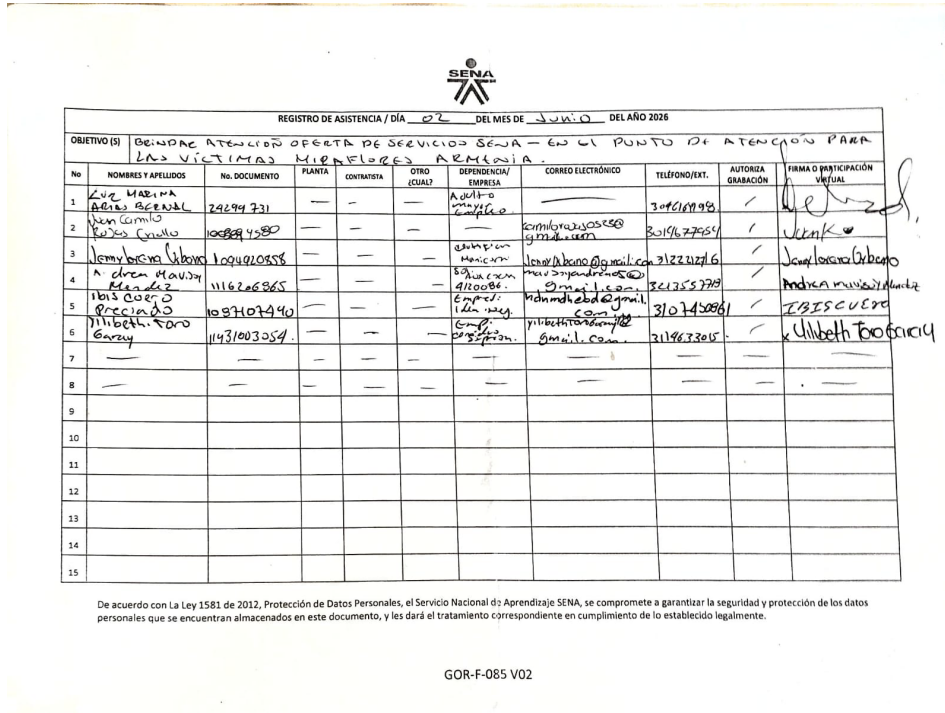 SENA
REGISTRO DE ASISTENCIA / DÍA 02 DEL MES DE Junio DEL AÑO 2026
OBJETIVO (S) BRINDAR ATENCIÓN OFERTA DE SERVICIOS SENA - EN El PUNTO DE ATENCIÓN PARA
LAS VÍCTIMAS MIRAFLORES ARMENIA.
No NOMBRES Y APELLIDOS No. DOCUMENTO PLANTA CONTRATISTA OTRO ¿CUAL? DEPENDENCIA/ EMPRESA CORREO ELECTRÓNICO TELÉFONO/EXT. AUTORIZA GRABACIÓN FIRMA O PARTICIPACIÓN VIRTUAL
1 LUZ MARINA ARIAS BERNAL 24294731 — — — Adulto mayor Empleo — /
2 Juan Camilo Rojas Criollo — — — — 3014677954 /
3 Jenny Lorena 1094920358 — — — 3122212716 / Jenny Lorena
4 Andrea Mendez 1116206865 — — — 4120086. gmail.com. 3213557719 / Andrea
5 Ibis Cuero Preciado 1087107440 — — — Empred. Iden.neg. hdnmdhebd@gmail.com 3107450861 / IBIS CUERO
6 Yilibeth. Toro Garzy 1131003054. — — — Emp. gmail.com. 3119633015 / x Yilibeth Toro
7 — — — — — — — — — —
8 — — — — — — — — — —
9
10
11
12
13
14
15
De acuerdo con La Ley 1581 de 2012, Protección de Datos Personales, el Servicio Nacional de Aprendizaje SENA, se compromete a garantizar la seguridad y protección de los datos
personales que se encuentran almacenados en este documento, y les dará el tratamiento correspondiente en cumplimiento de lo establecido legalmente.
GOR-F-085 V02